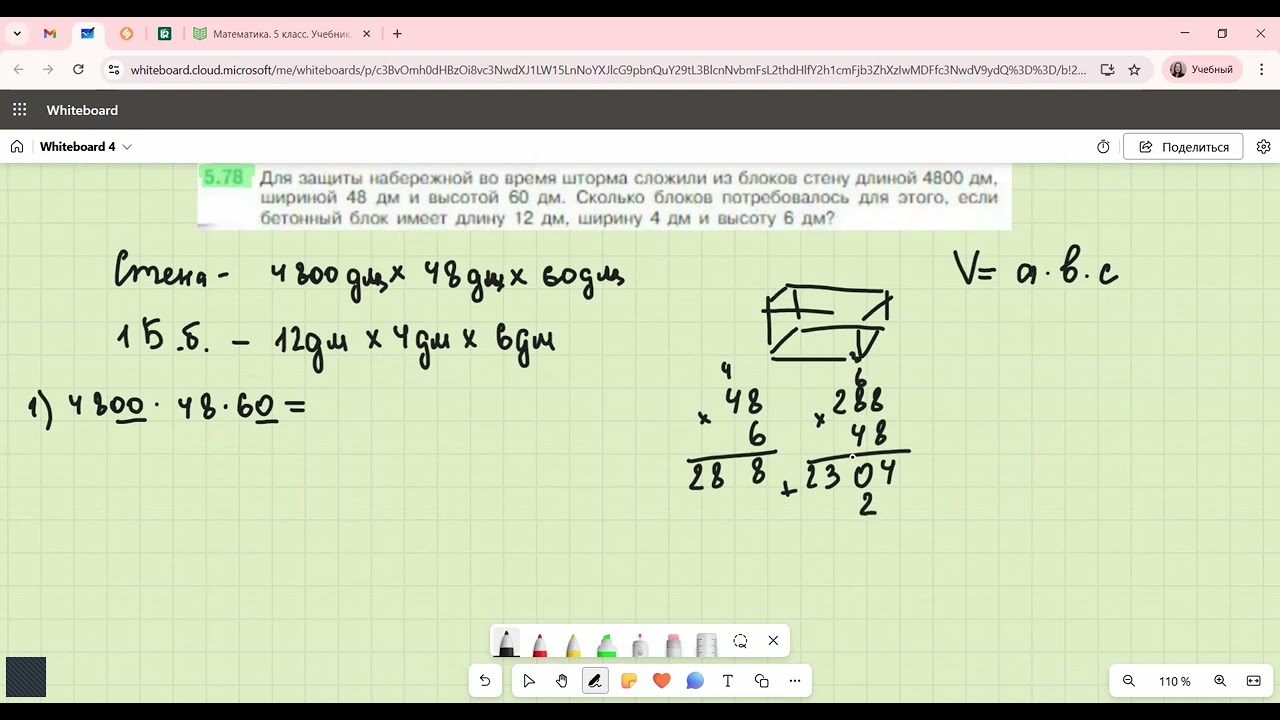 Математика. 5 класс. Учебник.
whiteboard.cloud.microsoft/me/whiteboards/p/
Учебный
Whiteboard
Whiteboard 4
Поделиться
5.78 Для защиты набережной во время шторма сложили из блоков стену длиной 4800 дм,
шириной 48 дм и высотой 60 дм. Сколько блоков потребовалось для этого, если
бетонный блок имеет длину 12 дм, ширину 4 дм и высоту 6 дм?
Стена - 4800 дм x 48 дм x 60 дм
V= a·b·c
1 Б.б. - 12дм x 4дм x 6дм
1) 4800 · 48 · 60 =
4
48
x 6
28 8
6
288
x 48
+ 2304
2
110 %